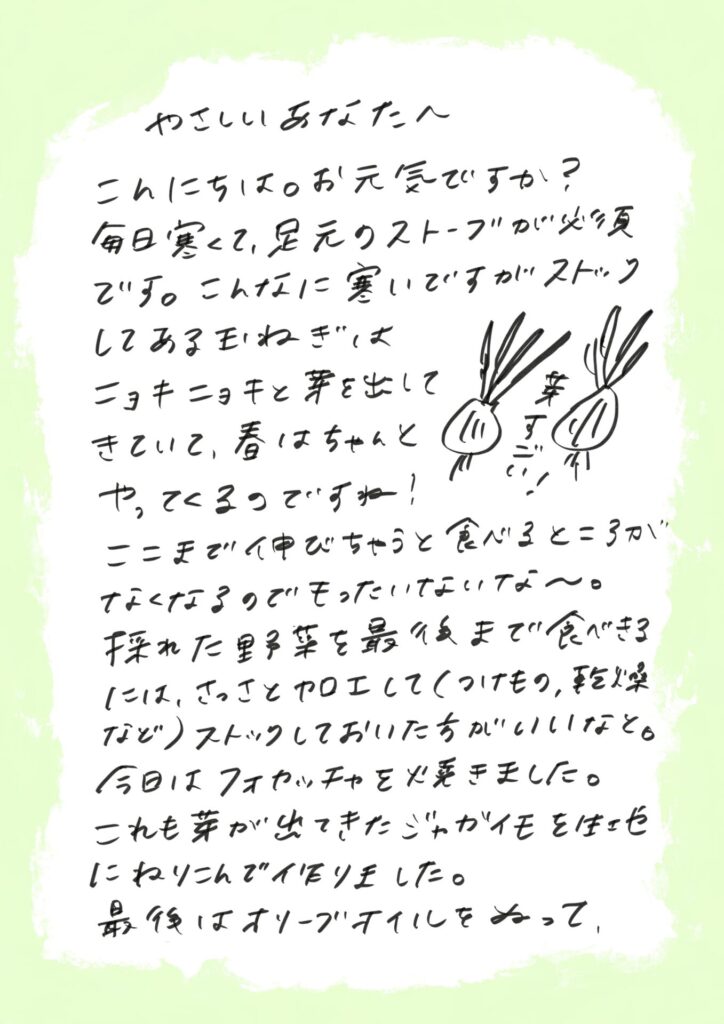 やさしいあなたへ
こんにちは。お元気ですか?
毎日寒くて、足元のストーブが必須
です。こんなに寒いですがストック
してある玉ねぎは
ニョキニョキと芽を出して
きていて、春はちゃんと
やってくるのですね!
芽すごい!
ここまで伸びちゃうと食べるところが
なくなるのでもったいないな〜。
採れた野菜を最後まで食べきる
には、さっさと加工して(つけもの、乾燥
など)ストックしておいた方がいいなと。
今日はフォカッチャを焼きました。
これも芽が出てきたジャガイモを生地
にねりこんで作りました。
最後はオリーブオイルをぬって、